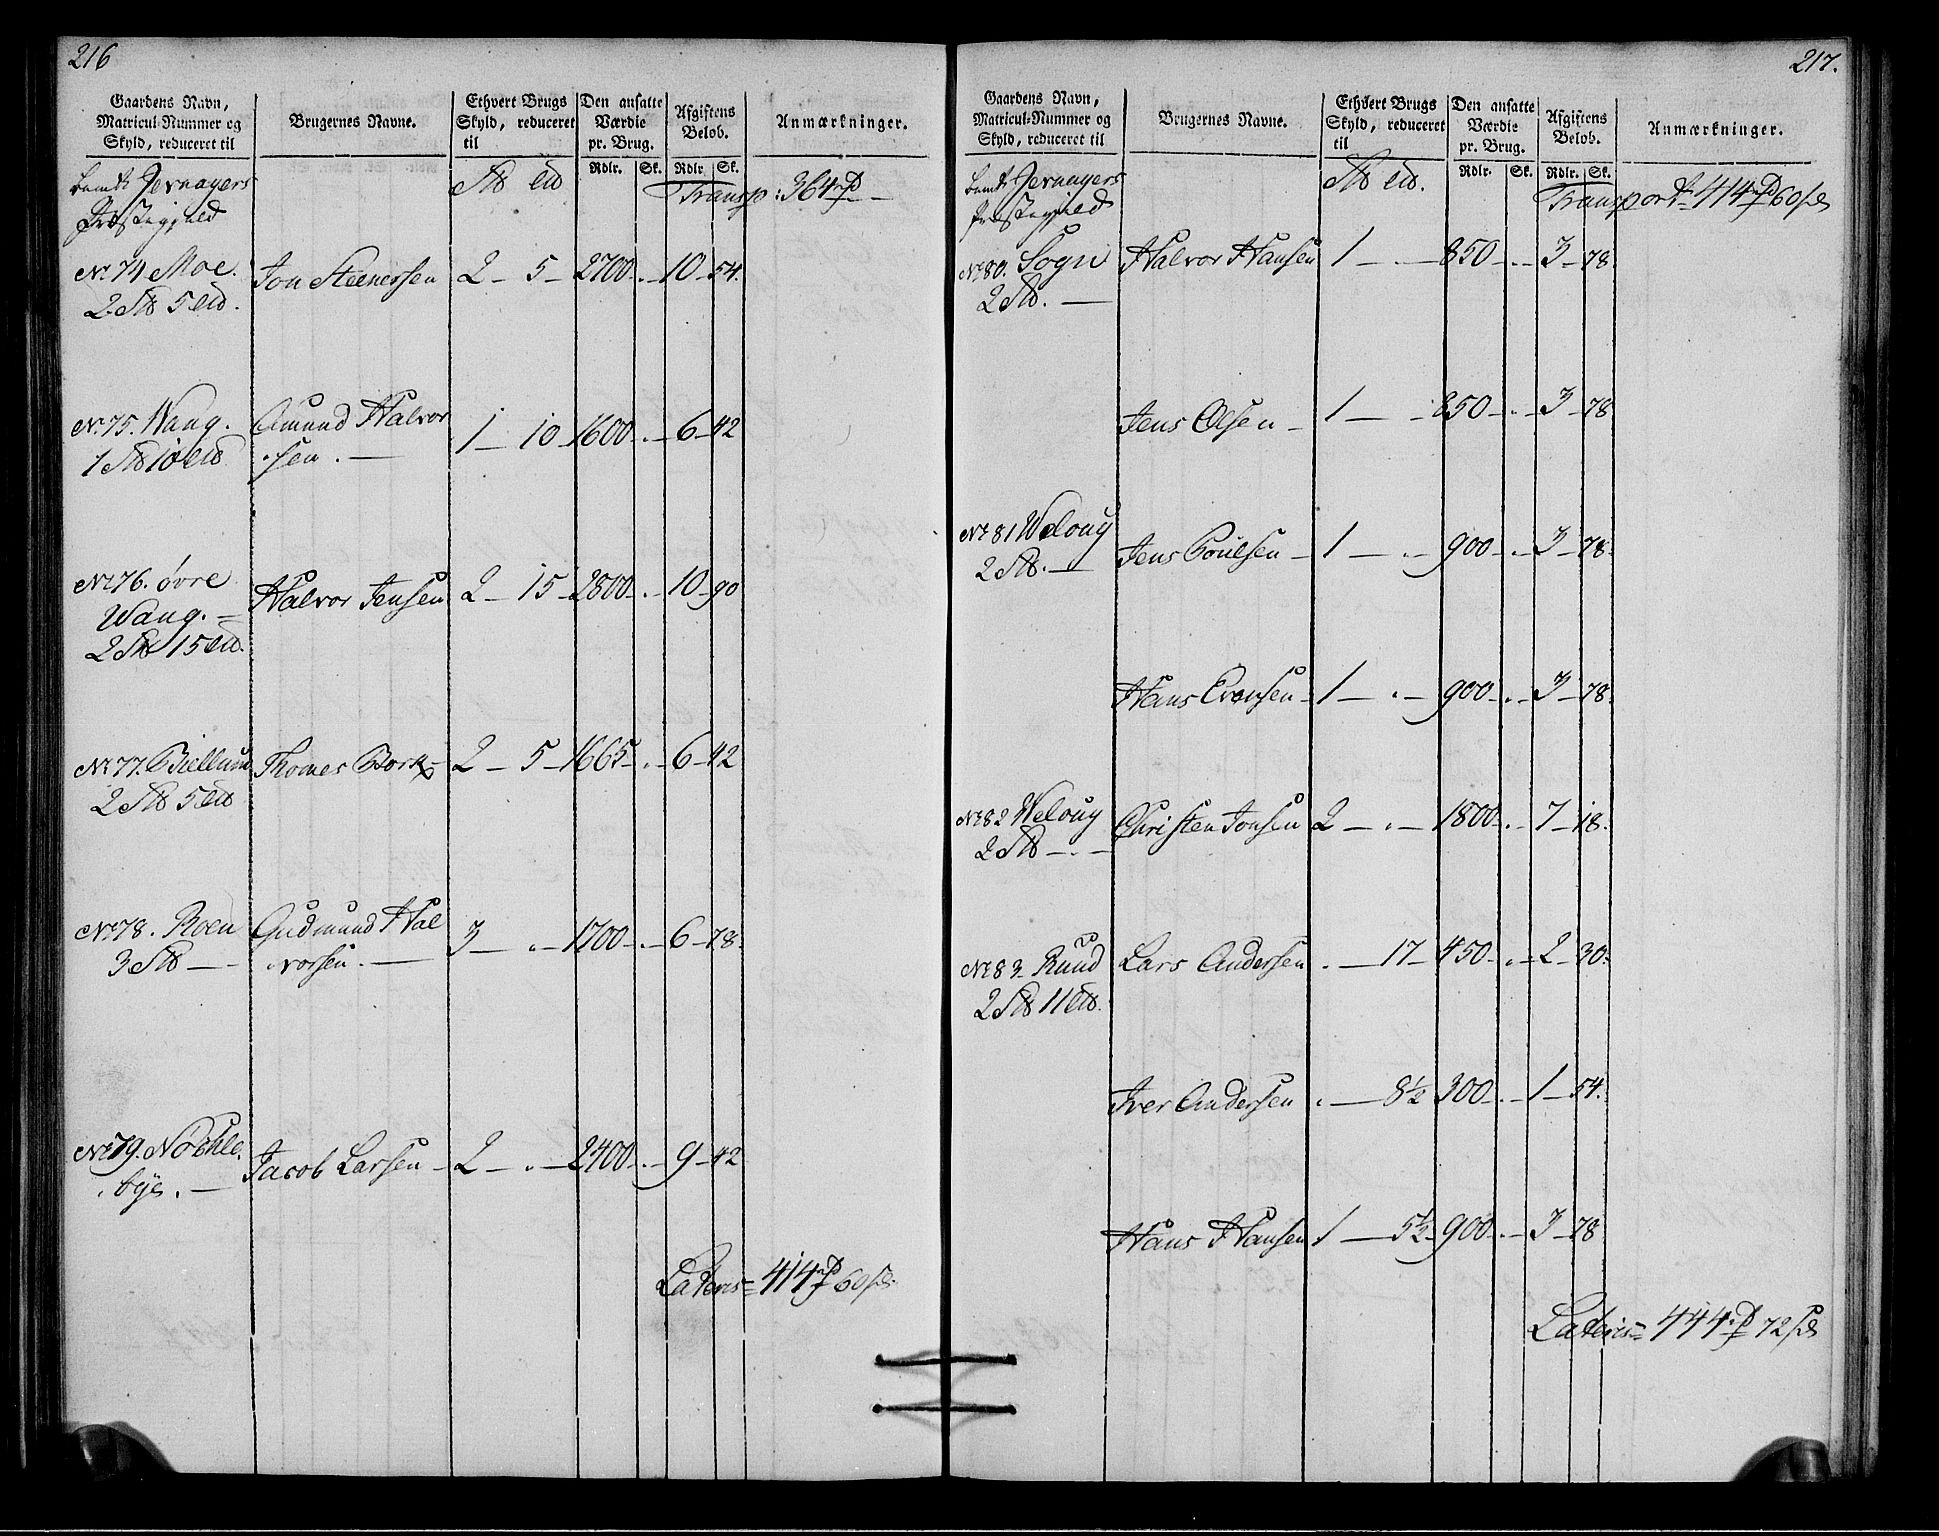 216
Gaardens Navn, Matricul-Nummer og Skyld, reduceret til | Brugernes Navne. | Ethvert Brugs Skyld, reduceret til | Den ansatte Værdie pr. Brug. | Afgiftens Beløb. | Anmærkninger.
Rdlr. Sk. Rdlr. Sk.
Jevnagers
Præstegield
Transp: 364
No. 74 Moe. Jon Steenersen 2 – 5 – 2700 – . – 10 – 54.
2 5
No. 75. Wang. Amund Halvor
1 10 sen. 1 – 10 – 1600 – . – 6 – 42
No. 76. øvre
Wang. Halvor Jensen 2 – 15 – 2800 – . – 10 – 90
2 15
No. 77. Biellum Thomes Bork 2 – 5 – 1665 – . – 6 – 42
2 5
No. 78. Roen Gudmund Hal
3 vorsen. 3 – . – 1700 – . – 6 – 78.
No. 79.
bye. Jacob Larsen – 2 – . – 2400 – . – 9 – 42
Lateris 414 60
217.
Gaardens Navn, Matricul-Nummer og Skyld, reduceret til | Brugernes Navne. | Ethvert Brugs Skyld, reduceret til | Den ansatte Værdie pr. Brug. | Afgiftens Beløb. | Anmærkninger.
Rdlr. Sk. Rdlr. Sk.
Jevnagers
Præstegield
Transport 414 60
No. 80. Sogn Halvor Hansen 1 – . – 850 – . – 3 – 78.
2
Jens Olsen – 1 – . – 850 – . – 3 – 78
No. 81 Weloug Jens Poulsen – 1 – . – 900 – . – 3 – 78.
2
Hans Evensen – 1 – . – 900 – . – 3 – 78.
No. 82 Weloug Christen Jonsen 2 – . – 1800 – . – 7 – 18.
2
No. 83. Ruud Lars Andersen . – 17 – 450 – . – 2 – 30.
2 11
Iver Andersen . – 8½ 300 – . – 1 – 54.
Hans Hansen 1 – 5½ – 900 – . – 3 – 78
Lateris 444 72